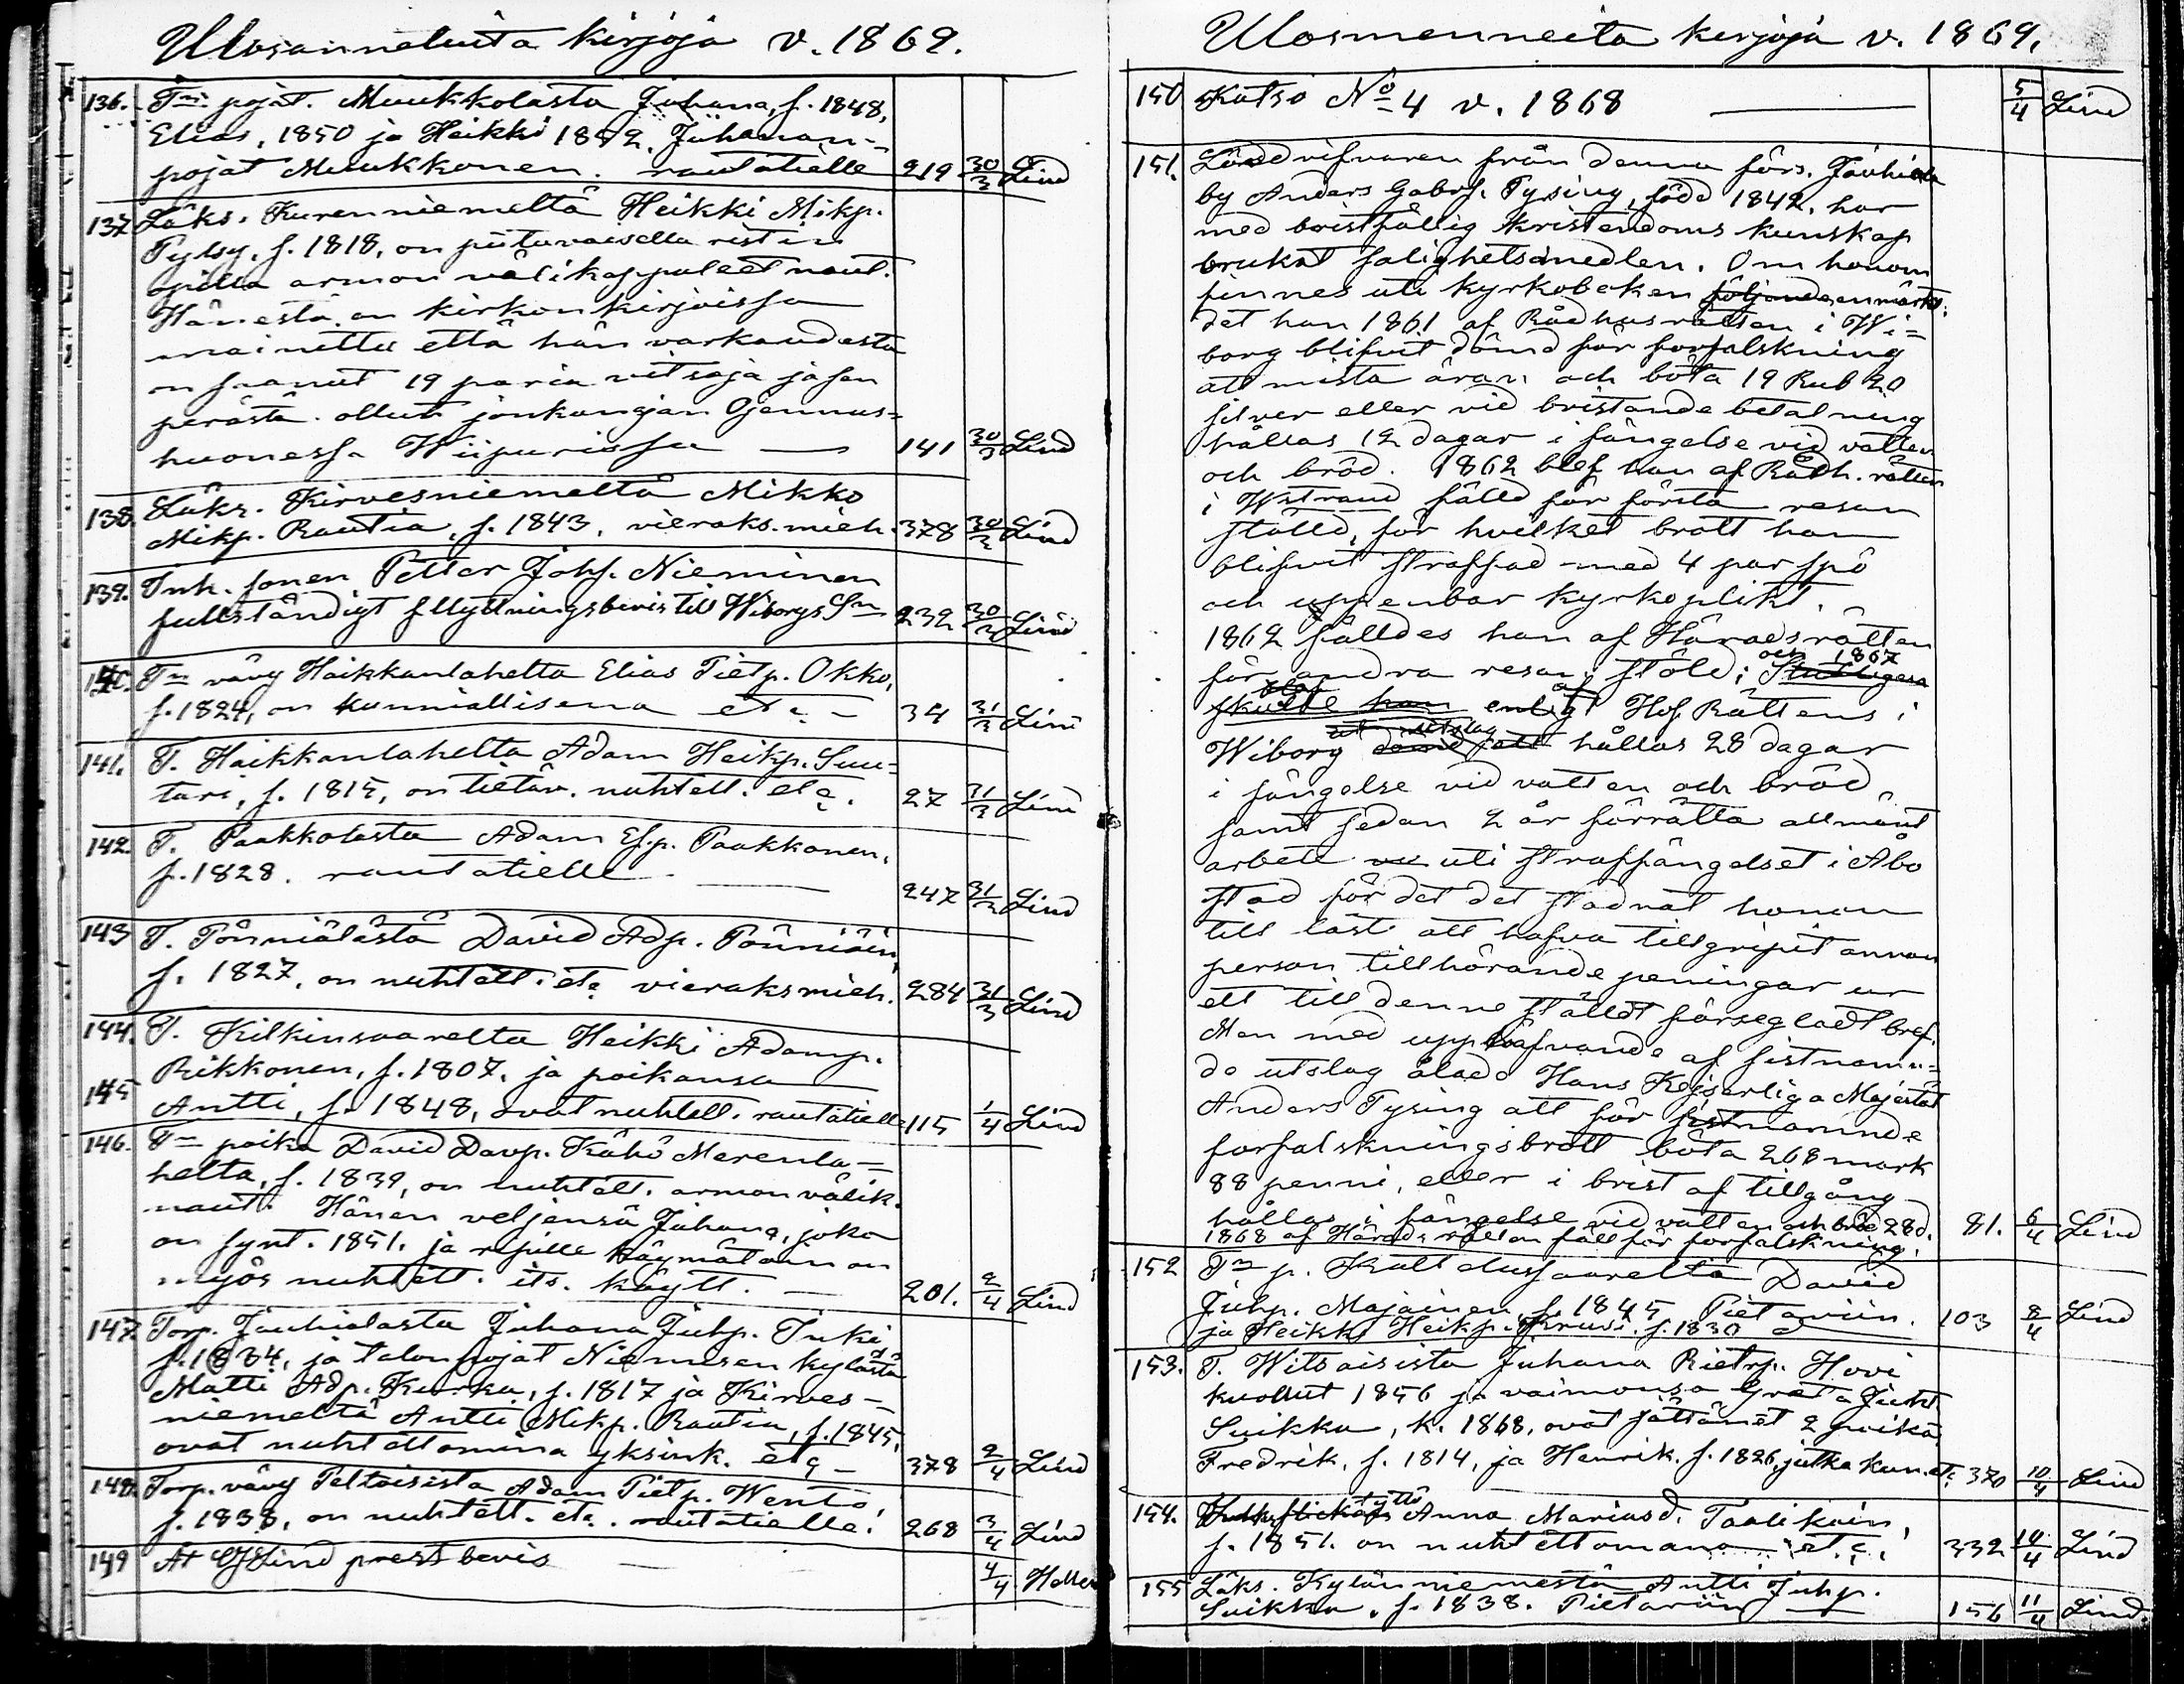 Ulosannetuita kirjoja v. 1869.
136. Tn pojat. Muukkolasta Juhana, f. 1848,
Elias, 1850 ja Heikki 1852, Juhanan-
pojat Muukkonen. rautatielle 219 30/3 Lind
137 Läks. Kurenniemeltä Heikki Mikp.
Pylsy, f. 1818, on piitavaisella ristin
opilla armon välikappaleet naut.
Hänestä on kirkonkirjoissa
mainittu että hän varkaudesta
on saanut 19 paria vitsoja ja sen
perästä ollut jonkunajan Ojennus-
huonessa Wiipurissa — 141 30/3 Lind
138. Läks. Kirvesniemeltä Mikko
Mikp. Rautia, f. 1843, vieraks. mieh. 378 30/3 Lind
139. Inh. sonen Petter Johs. Nieminen
fullständigt flyttningsbevis till Wiborgs Sn 232 30/3 Lind
140. Tn vävy Haikkanlahelta Elias Pietp. Okko,
f. 1824, on kunniallisena etc. — 34 31/3 Lind
141. T. Haikkanlahelta Adam Heikp. Suu-
tari, f. 1815, on tietäv. nuhtett. etc. 27 31/3 Lind
142. T. Paakkolasta Adam Es.p. Paakkonen,
f. 1828. rautatielle — 247 31/3 Lind
143 T. Pönniälästä David Adp. Pönniäin,
f. 1827, on nuhtett. etc vieraksmieh. 284 31/3 Lind
144. T. Kilkinsaarelta Heikki Adamp.
Rikkonen, f. 1807, ja poikansa
145 Antti, f. 1848, ovat nuhtett. rautatielle 115 1/4 Lind
146. Tn poika David Davp. Kähö Merenla-
helta, f. 1839, on nuhtett. armon välik.
naut. Hänen veljensä Juhana, joka
on synt. 1851. ja ripille käymätöin on
myös nuhtett. its. käytt. — 201. 2/4 Lind
147 Torp. Jauhialasta Juhana Juhp. Tuki
f. 1834, ja talonpojat Niemisen kylästä
Matti Adp. Kurka, f. 1817 ja Kirves-
niemeltä Antti Mikp. Rautia, f. 1845,
ovat nuhtettomina yksink. etc — 378 2/4 Lind
148. Torp. vävy Peltoisista Adam Pietp. Wento,
f. 1838, on nuhtett. etc. rautatielle. 268 3/4 Lind
149 At GJLind prestbevis — 4/4
Ulosmenneitä kirjoja v. 1869.
150 Katso No 4 v. 1868 — 5/4 Lind
151. från denna förs. Jauhiala
by Anders Gabrs. Tysing, född 1842, har
med bristfällig kristendoms kunskap
brukat salighetsmedlen. Om honom
finnes uti kyrkoboken följande anmärkt:
det han 1861 af Rådhusrätten i Wi-
borg blifvit dömd för förfalskning
att mista äran och böta 19 Rub 20
silver eller vid bristande betalning
hållas 12 dagar i fängelse vid vatten
och bröd. 1862 blef han af Rådh. rätten
i Wstrand fälld för första resan
stöld, för hvilket brott han
blifvit straffad med 4 par spö
och uppenbar kyrkoplikt.
1862 fälldes han af Häradsrätten
för andra resan stöld; och 1867
skulle han enligt af Hof Rättens i
Wiborg utslag dömd att hållas 28 dagar
i fängelse vid vatten och bröd,
samt sedan 2 år förrätta allmänt
arbete uti straffängelset i Åbo
stad för det det stadnat honom
till last att hafva tillgripit annan
person tillhörande peningar ur
ett till denne ställdt försegladt bref.
Men med upphäfvande af sistnämn-
da utslag ålade Hans Kejserliga Majestät
Anders Tysing att för sistnämnde
förfalskningsbrott böta 268 mark
88 penni, eller i brist af tillgång
hållas i fängelse vid vatten och bröd 28 d.
1868 af Häradsrätten fäld för förfalskning. 81. 6/4 Lind
152 Tn p. Kultalussaarelta David
Juhp. Majainen, f. 1845 Pietariin.
ja Heikki Heikp. Kruusi. f. 1830 103 8/4 Lind
153. T. Witsaisista Juhana Pietrp. Hovi
kuollut 1856 ja vaimonsa Greta Juht.
Suikka, k. 1868, ovat jättänet 2 poikaa,
Fredrik, f. 1814, ja Henrik. f. 1826, jotka kun. etc 370 10/4 Lind
154. tyttö Anna Mariasd. Taalikain,
f. 1851. on nuhtettomana etc. 332 10/4 Lind
155 Läks. Kylänniemestä Antti Juhp.
Suikka, f. 1838. Pietariin — 156 11/4 Lind.